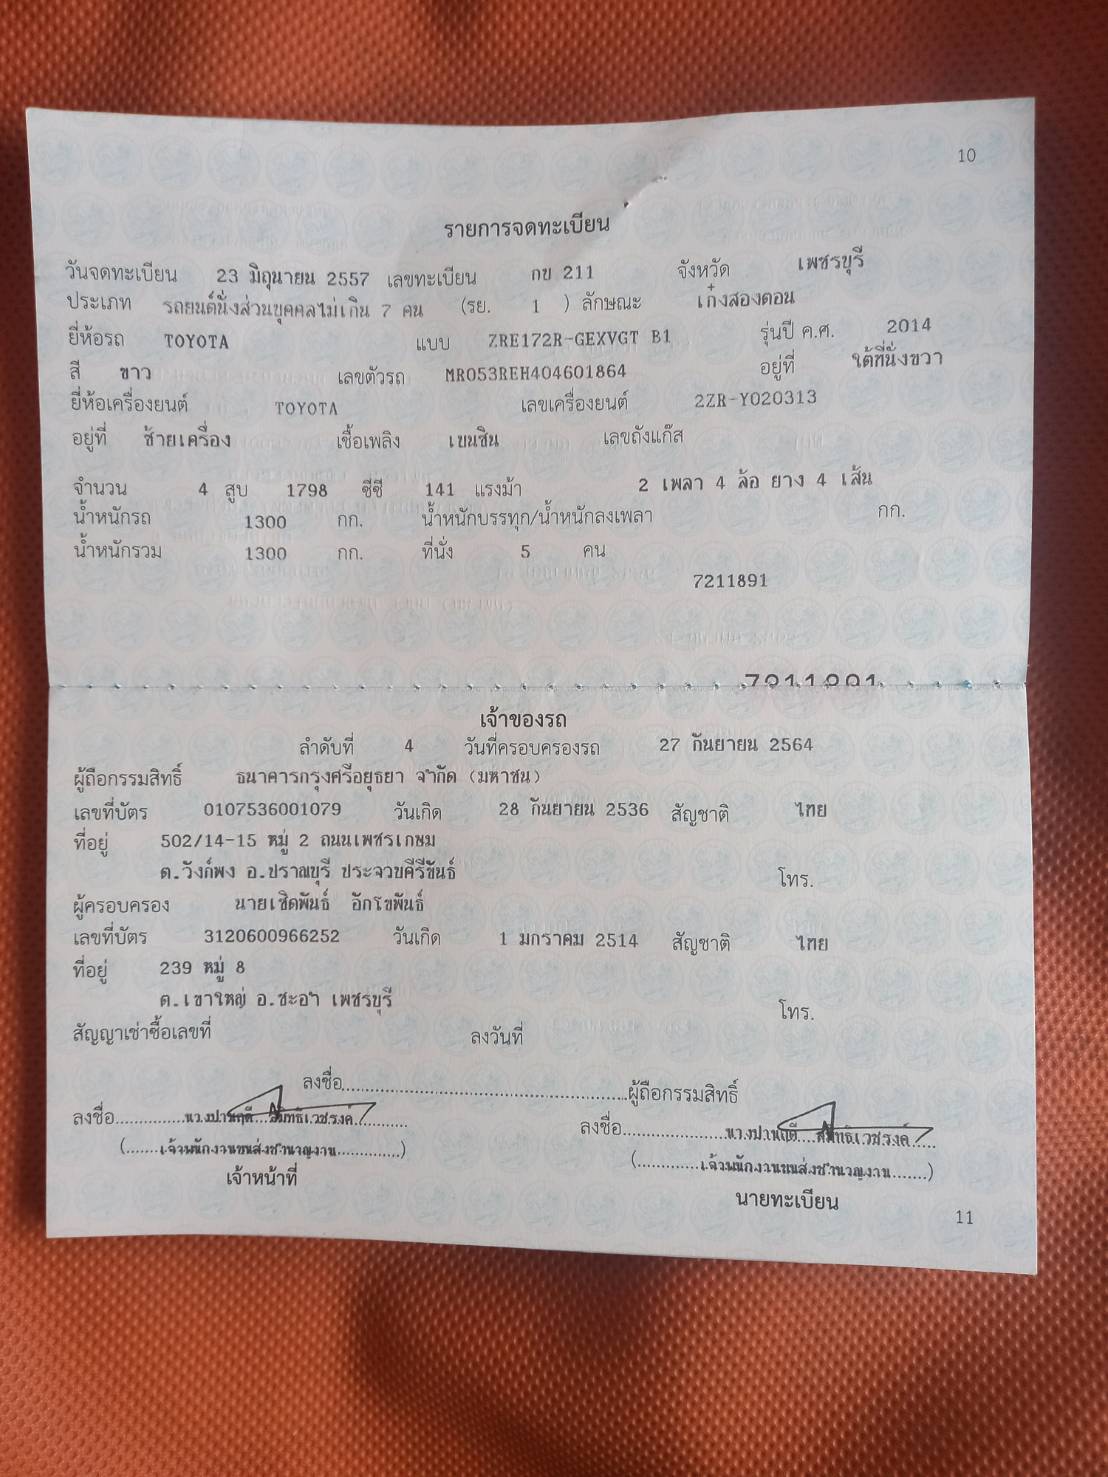 10
รายการจดทะเบียน
วันจดทะเบียน 23 มิถุนายน 2557 เลขทะเบียน กข 211 จังหวัด เพชรบุรี
ประเภท รถยนต์นั่งส่วนบุคคลไม่เกิน 7 คน (รย. 1 ) ลักษณะ เก๋งสองตอน
ยี่ห้อรถ TOYOTA แบบ ZRE172R-GEXVGT B1 รุ่นปี ค.ศ. 2014
สี ขาว เลขตัวรถ MR053REH404601864 อยู่ที่ ใต้ที่นั่งขวา
ยี่ห้อเครื่องยนต์ TOYOTA เลขเครื่องยนต์ 2ZR-Y020313
อยู่ที่ ซ้ายเครื่อง เชื้อเพลิง เบนซิน เลขถังแก๊ส
จำนวน 4 สูบ 1798 ซีซี 141 แรงม้า 2 เพลา 4 ล้อ ยาง 4 เส้น
น้ำหนักรถ 1300 กก. น้ำหนักบรรทุก/น้ำหนักลงเพลา กก.
น้ำหนักรวม 1300 กก. ที่นั่ง 5 คน
7211891
เจ้าของรถ
ลำดับที่ 4 วันที่ครอบครองรถ 27 กันยายน 2564
ผู้ถือกรรมสิทธิ์ ธนาคารกรุงศรีอยุธยา จำกัด (มหาชน)
เลขที่บัตร 0107536001079 วันเกิด 28 กันยายน 2536 สัญชาติ ไทย
ที่อยู่ 502/14-15 หมู่ 2 ถนนเพชรเกษม
ต.วังก์พง อ.ปราณบุรี ประจวบคีรีขันธ์
โทร.
ผู้ครอบครอง นายเชิดพันธ์ อักโขพันธ์
เลขที่บัตร 3120600966252 วันเกิด 1 มกราคม 2514 สัญชาติ ไทย
ที่อยู่ 239 หมู่ 8
ต.เขาใหญ่ อ.ชะอำ เพชรบุรี
โทร.
สัญญาเช่าซื้อเลขที่ ลงวันที่
ลงชื่อ ผู้ถือกรรมสิทธิ์
ลงชื่อ ลงชื่อ
(เจ้าพนักงานขนส่งชำนาญงาน) (เจ้าพนักงานขนส่งชำนาญงาน)
เจ้าหน้าที่ นายทะเบียน
11